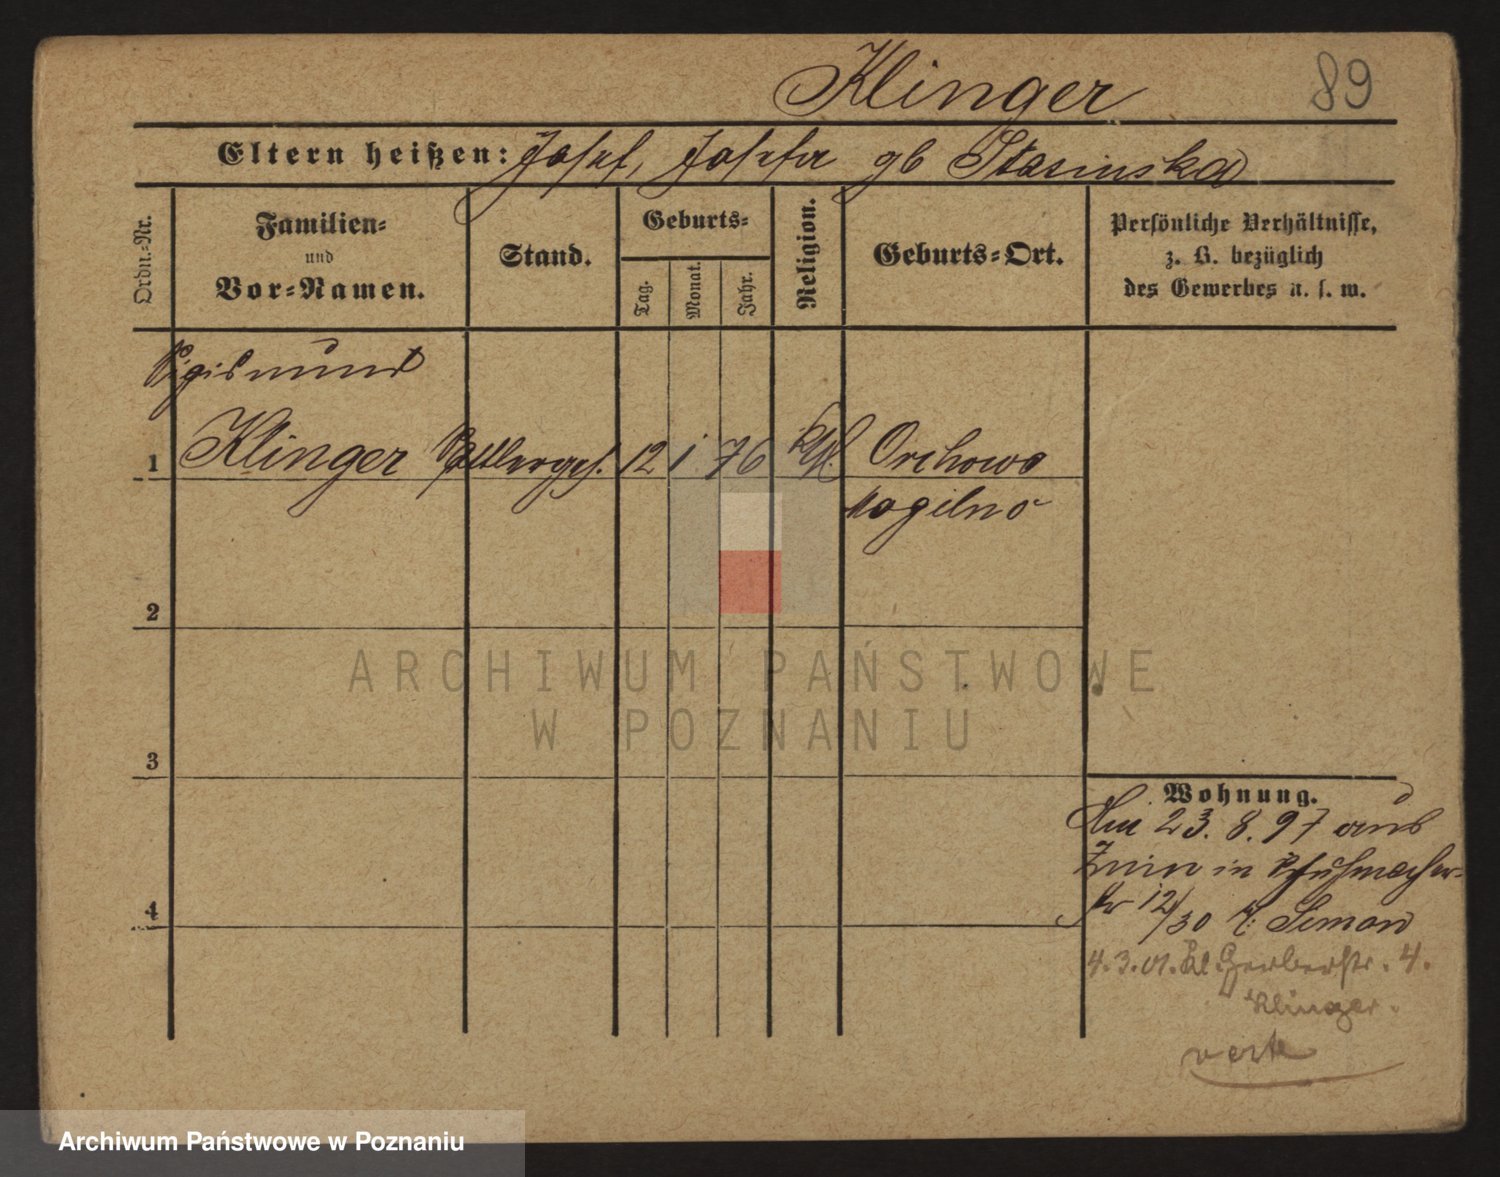 Klinger
89
Eltern heißen: Josef, Josefa gb Stasinska
Ordn.-Nr.
Familien-
und
Vor-Namen.
Stand.
Geburts-
Tag.
Monat.
Jahr.
Religion.
Geburts-Ort.
Persönliche Verhältnisse,
z. B. bezüglich
des Gewerbes u. s. w.
Sigismund
1 Klinger Sattlerges. 12 1 76 kth. Orchowo
Mogilno
2
3
4
Wohnung.
Am 23. 8. 97 aus
Znin in Schuhmacher-
str 12/30 b. Simon
4. 3. 01. Kl. Gerberstr. 4.
Klinger.
verte
ARCHIWUM PAŃSTWOWE
W POZNANIU
Archiwum Państwowe w Poznaniu